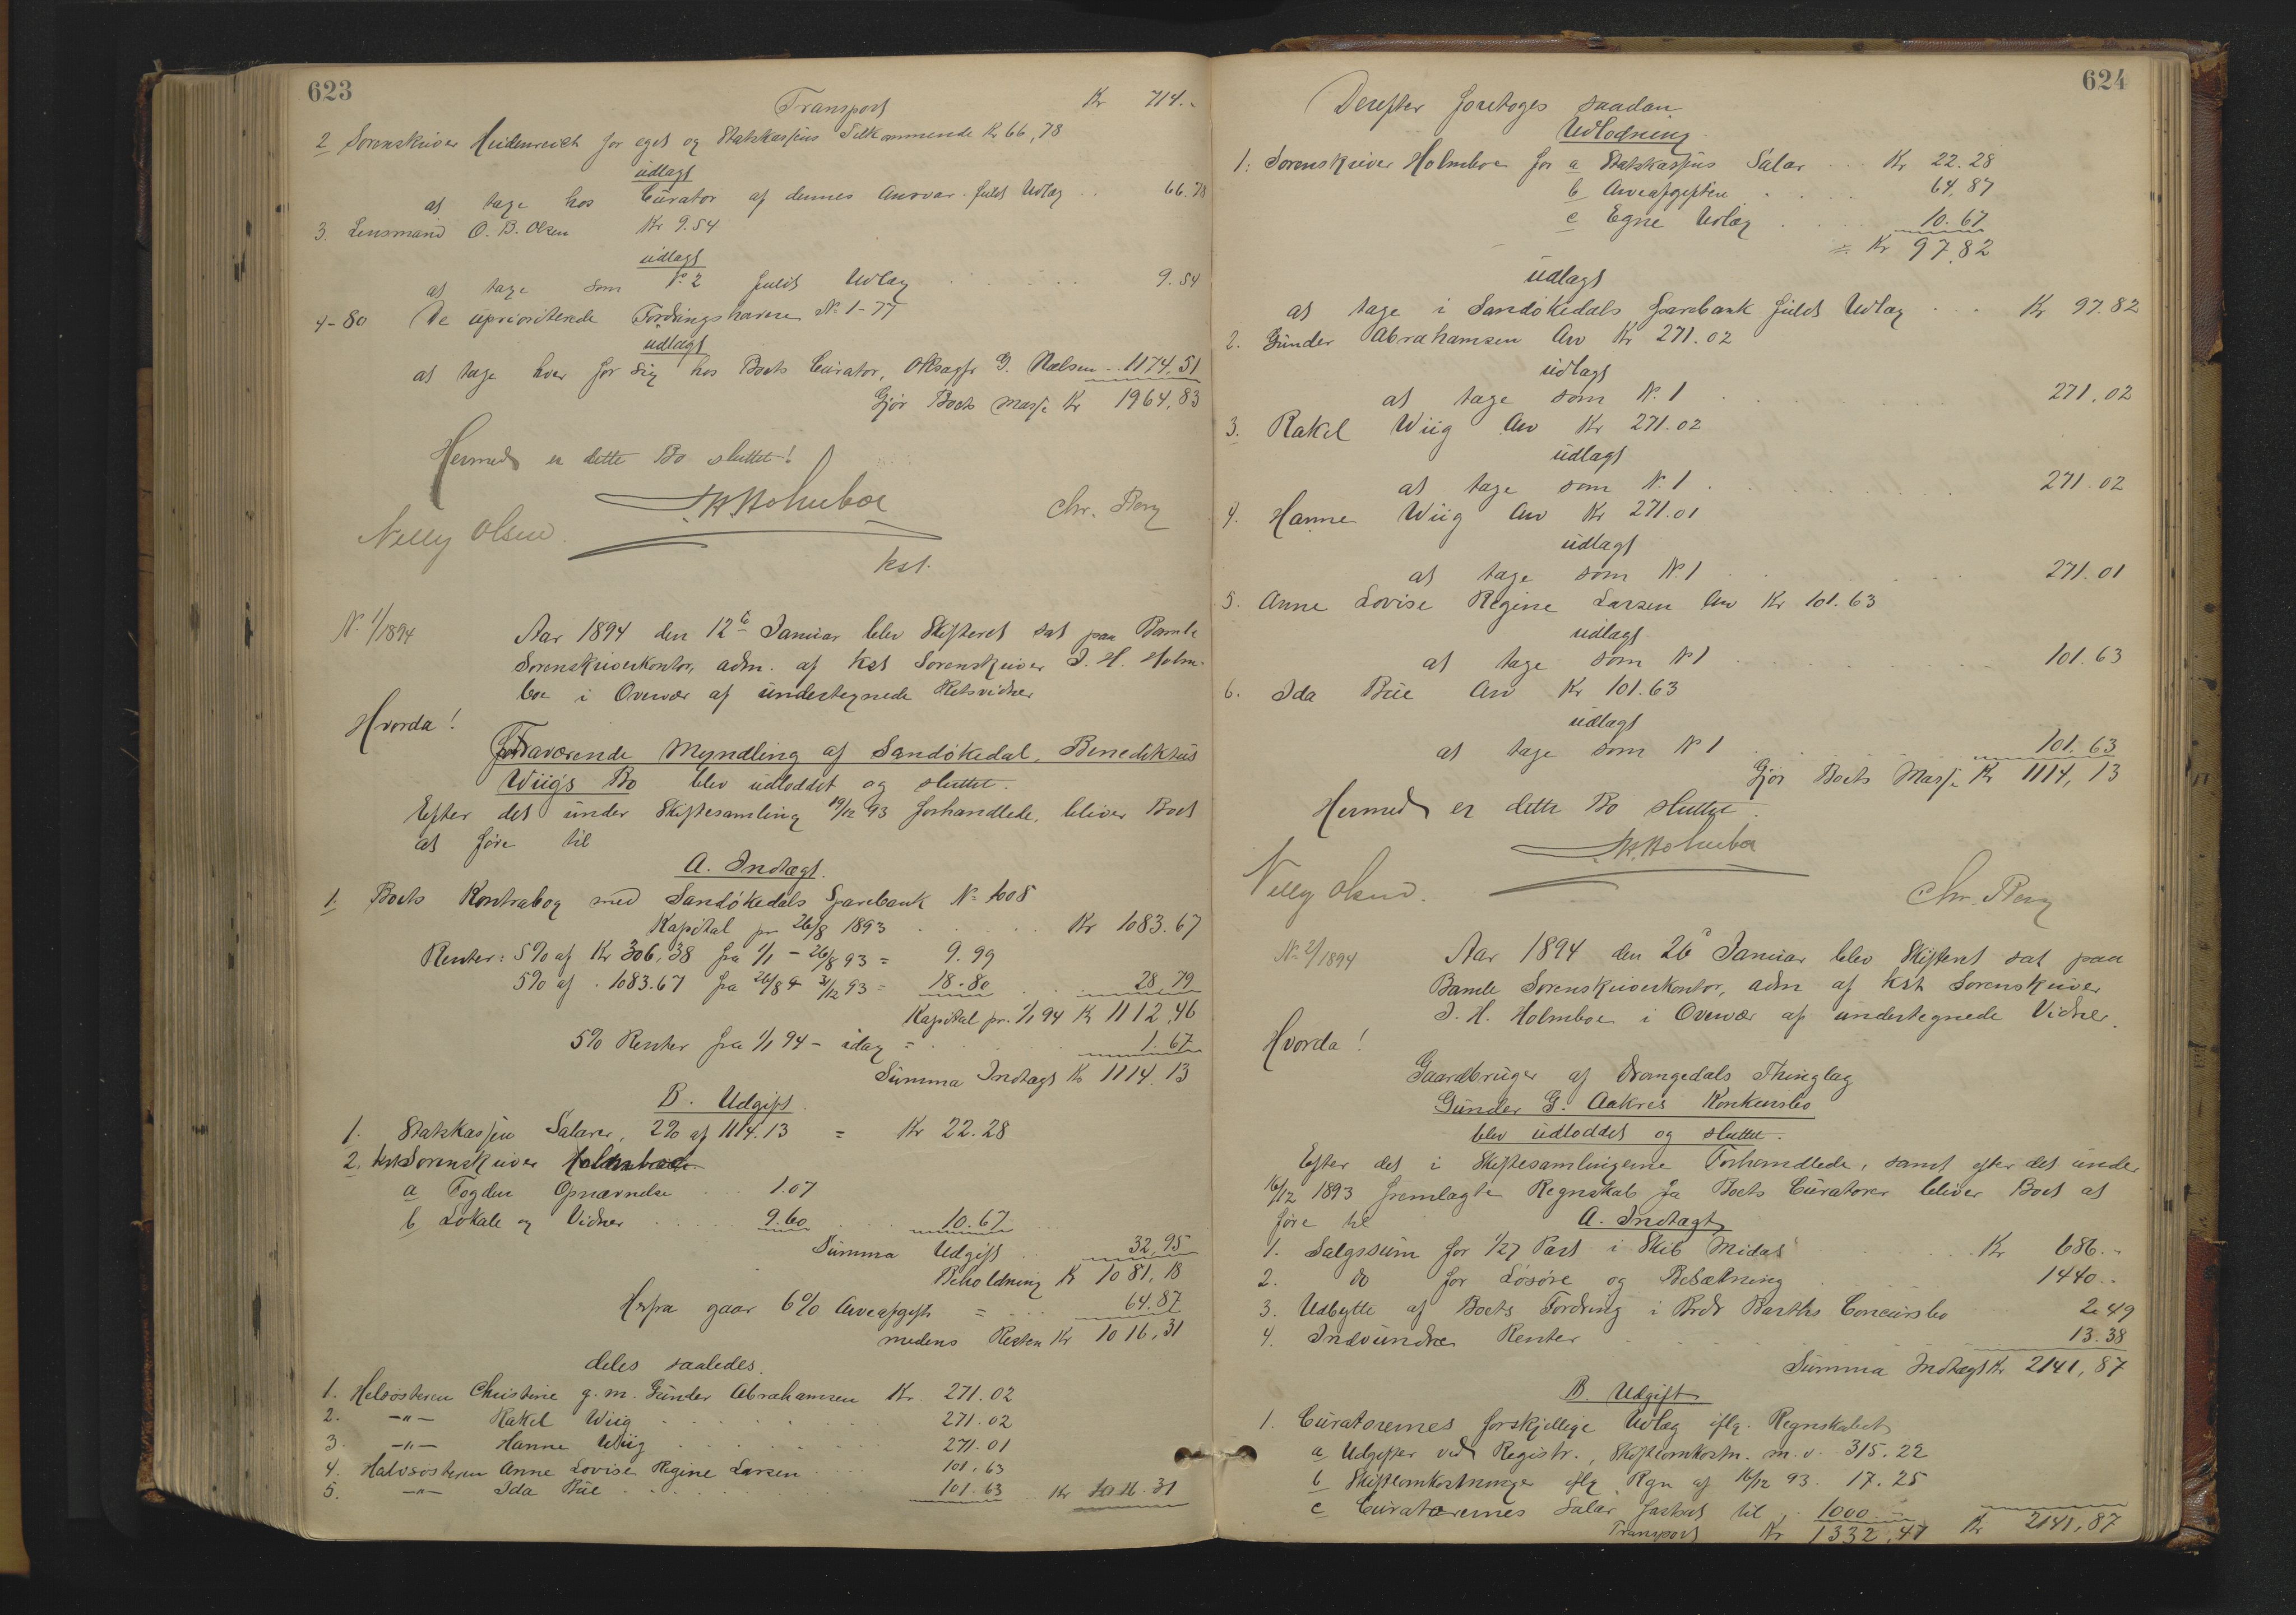 623
Transport Kr 714.-
2 Sorenskriver Heidenreich for eget og Statskassens Tilkommende Kr 66,78
udlagt
at tage hos Curator af dennes Ansvar fuldt Udlæg .. 66.78
3. Lensmand O. B. Olsen Kr 9.54
udlagt
at tage som No 2 fuldt Udlæg 9.54
4-80 De uprioriterede Fordringshavere No 1-77
udlagt
at tage hver for sig hos Boets Curator, O. G. Nielsen .. 1174,51
Gjør Boets Masse Kr 1964,83
Hermed er dette Bo sluttet!
J H Holmboe
Nelly Olsen. Chr. Berg
kst.
No 1/1894 Aar 1894 den 12te Januar blev Skifteret sat paa Bamle
Sorenskriverkontor, adm. af kst Sorenskriver J. H. Holm-
boe i Overvær af undertegnede Retsvidner
Hvorda!
Fraværende Myndling af Sandøkedal, Benediktus
Wiig's Bo blev udloddet og sluttet.
Efter det under Skiftesamling 19/12 93 forhandlede, bliver Boet
at føre til
A. Indtægt.
1 Boets Kontrabog med Sandøkedals Sparebank No 1008
Kapital pr 26/8 1893 Kr 1083.67
Renter: 5% af Kr 306,38 fra 1/1 - 26/8 93 = 9.99
5% af . 1083.67 fra 26/8 - 31/12 93 = 18.80 28,79
Kapital pr. 1/1 94 Kr 1112,46
5% Renter fra 1/1 94 - idag = 1.67
Summa Indtægt Kr 1114.13
B. Udgift.
1. Statskassen Salarer, 2% af 1114.13 = Kr 22.28
2. kst Sorenskriver Holmboe
a Fogdens Opnævnelse 1.07
b Lokale og Vidner 9.60 10.67
Summa Udgift 32,95
Beholdning Kr 1081,18
Herfra gaar 6% Arveafgift = 64.87
medens Resten Kr 1016,31
deles saaledes.
1. Helsøsteren Christine g. m. Gunder Abrahamsen Kr 271.02
2. -"- Rakel Wiig 271.02
3. -"- Hanne Wiig 271.01
4. Halvsøsteren Anne Lovise Regine Larsen 101.63
5. -"- Ida Bue 101.63 Kr 1016.31
624
Derefter foretoges saadan
Udlodning.
1: Sorenskriver Holmboe for a Statskassens Salar Kr 22.28
b Arveafgiften 64,87
c Egne Udlæg 10.67
= Kr 97,82
udlagt
at tage i Sandøkedals Sparebank fuldt Udlæg Kr 97.82
2. Gunder Abrahamsen Arv Kr 271.02
udlagt
at tage som No 1 271.02
3. Rakel Wiig Arv Kr 271.02
udlagt
at tage som No 1 271.02
4. Hanne Wiig Arv Kr 271.01
udlagt
at tage som No 1 271.01
5. Anne Lovise Regine Larsen Arv Kr 101.63
udlagt
at tage som No 1 101.63
6. Ida Bue Arv Kr 101.63
udlagt
at tage som No 1 101.63
Gjør Boets Masse Kr 1114,13
Hermed er dette Bo sluttet.
J H Holmboe
Nelly Olsen. Chr. Berg
No 2/1894 Aar 1894 den 26de Januar blev Skifteret sat paa
Bamle Sorenskriverkontor, adm af kst Sorenskriver
J. H. Holmboe i Overvær af undertegnede Vidner.
Hvorda!
Gaardbruger af Drangedals Thinglag
Gunder G. Aakres Konkursbo
blev udloddet og sluttet.
Efter det i Skiftesamlingerne Forhandlede, samt efter det under
16/12 1893 fremlagte Regnskab fra Boets Curatorer bliver Boet at
føre til A. Indtægt
1. Salgssum for 1/27 Part i Skib "Midas" Kr 686.-
2. do for Løsøre og Besætning 1440.-
3. Udbytte af Boets Fordring i Brdr Barths Concursbo 2.49
4. Indvundne Renter 13.38
Summa Indtægt Kr 2141,87
B. Udgift
1. Curatorernes forskjellige Udlæg iflg. Regnskabet
a Udgifter ved Registr., Skifteomkostn. m. v. 315.22
b Skifteomkostninger iflg Rgn af 16/12 93. 17.25
c Curatorernes Salar fastsat til 1000.-
Transport Kr 1332,47 Kr 2141,87